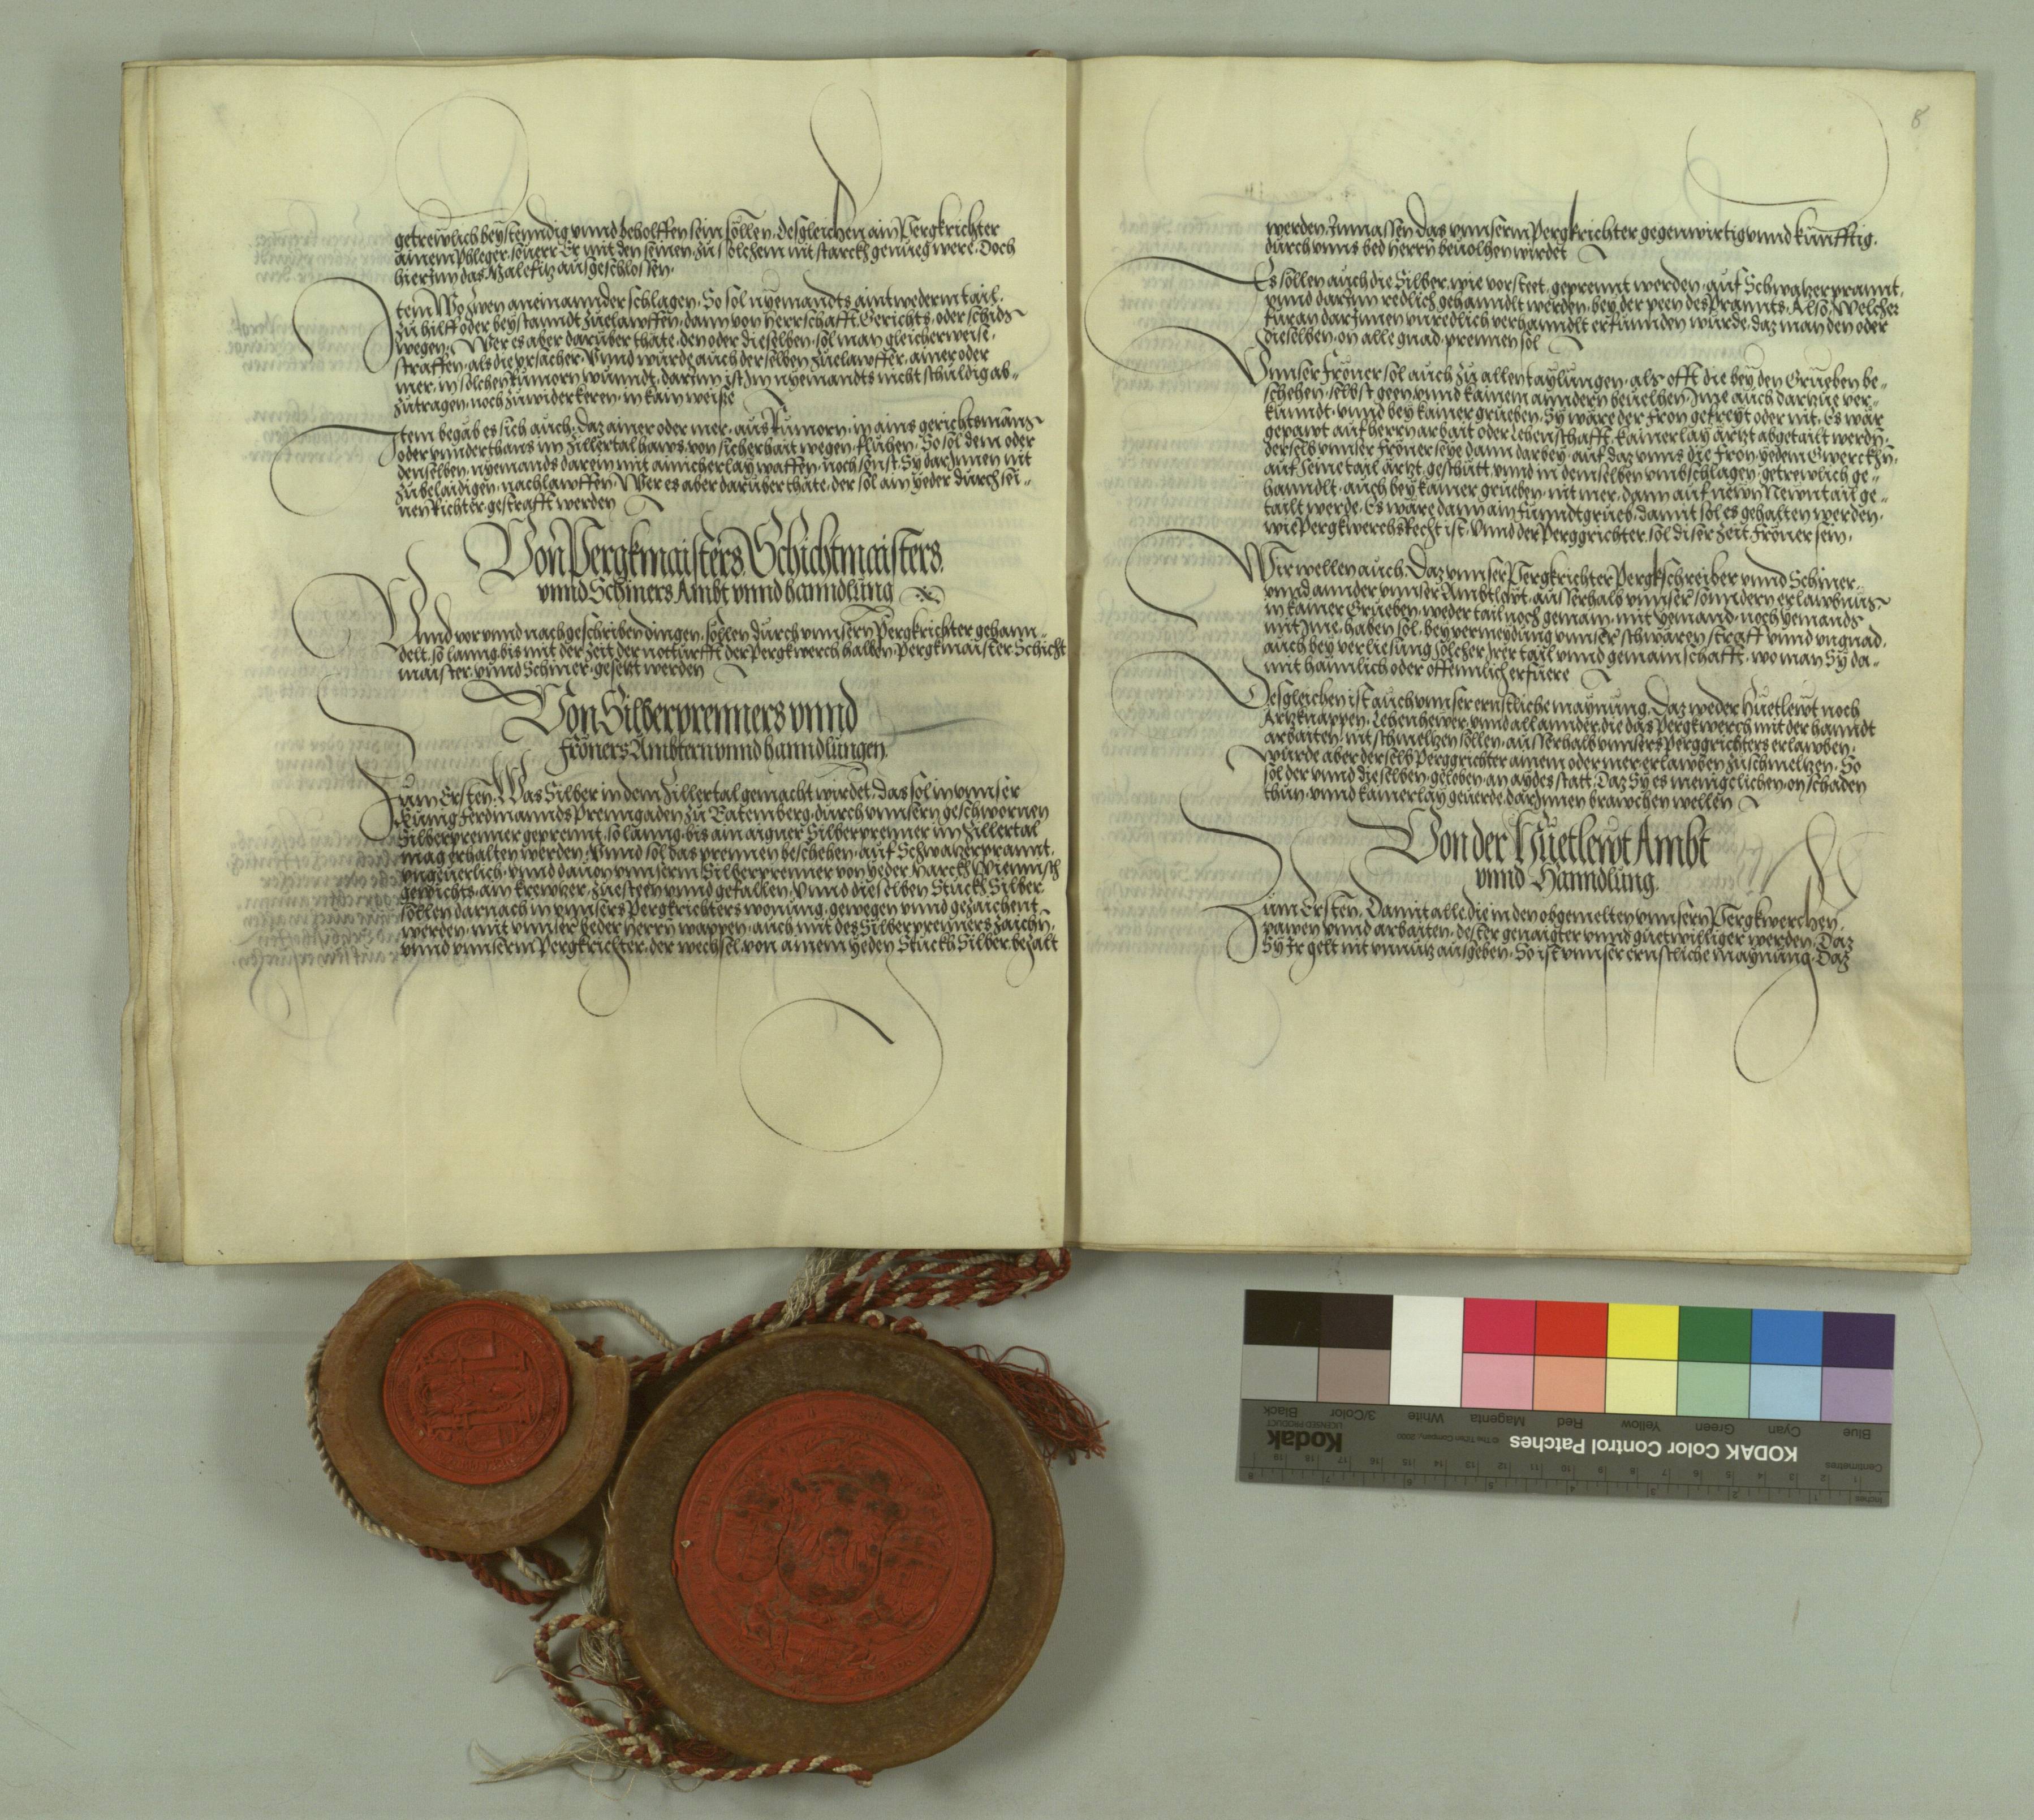 getrewlich beystenndig vnnd beholffen sein sollen. desgleichen ain Pergkrichter
ainem Phleger. souerr Er mit den seinen. zu solchem nit starckh genueg were. Doch
hierInn das Malefitz ausgeschlossen.
Item Wo zwen aneinannder schlagen. So sol nyemandts aintwederm tail.
zu hilff oder beystanndt zuelawffen. dann von herrschafft. Gerichts. oder schids
wegen. Wer es aber darüber thäte. den oder dieselben. sol man gleicherweise.
straffen. als die vrsacher. Vnnd wurde auch derselben zuelawffer. ainer oder
mer. in solchen Rumorn wunndt. darInn ist Im nyemandts nicht schuldig ab-
zutragen. noch zuwiderkeren. in kain weise
Item begäb es sich auch. daz ainer oder mer. aus Rumorn. in ains gerichtsmans
oder vnnderthans im Zillertal haws. von sicherhait wegen. fluhen. So sol dem oder
denselben. nyemands darein mit ainicherlay waffen. noch sonst. Sy darInnen nit
zubelaidigen. nachlawffen. Wer es aber darüber thäte. der sol ain yeder durch sei-
nen Richter. gestrafft werden
Von Pergkmaisters. Schichtmaisters.
vnnd Schiners Ambt vnnd hanndlung
Vnnd vor vnnd nachgeschriben dingen. sollen durch vnnsern Pergkrichter gehann-
delt. so lanng. bis mit der zeit der notturfft der Pergkwerch halben. Pergkmaister. Schicht
maister. vnnd Schiner. gesetzt werden
Von Silberprenners vnnd
Fröners Ämbtern vnnd hanndlungen.
Zum Ersten. Was Silber in dem Zillertal gemacht wirdet. das sol in vnnser
Kunig Ferdinannds Prenngaden zu Ratemberg. durch vnnsern geschwornen
Silberprenner geprennt. so lanng. bis ain aigner Silberprenner im Zillertal
mag erhalten werden. Vnnd sol das prennen beschehen. auf Schwatzer prannt.
vngeuerlich. vnnd dauon vnnserm Silberprenner von yeder Marckh Wiennisch
gewichts. ain krewtzer. zuesteen vnnd gefallen. Vnnd dieselben Stuckh Silber.
sollen darnach in vnnsers Pergkrichters wonung. gewegen vnnd gezaichent
werden. mit vnnser yeder herrn wappen. auch mit des Silberprenners zaichn.
vnnd vnnserm Pergkrichter. der wechsel. von ainem yeden Stuckh Silber. bezalt
8
werden. Inmassen das vnnserm Pergkrichter gegenwirtig vnnd kunfftig.
durch vnns bed herrn beuolhen wirdet
Es sollen auch die Silber. wie vorsteet. geprennt werden. auf Schwatzer prannt.
vnnd darInn redlich gehanndlt werden. bey der peen des Prannts. Also Welcher
füran darInnen vnredlich verhanndlt erfunnden wurde. daz man den oder
dieselben. on alle gnad. prennen sol
Vnnser Fröner sol auch zu allen taylungen. als offt die bey den Grueben be-
schehen. selbst geen vnnd kainem anndern beuelhen. Ime auch darzue ver-
kunndt. vnnd bey kainer grueben. Sy wäre der Fron gefreyt oder nit. Es wär
gepawt auf herrn arbait oder Lehenschafft. kainerlay ärtzt abgetailt werdn.
derselb vnnser Fröner seye dann darbey. auf daz vnns die Fron. yedem Gwerckhn.
auf seine tail ärtzt. geschütt. vnnd in demselben vmbschlagen. getrewlich ge-
hanndlt. auch bey kainer grueben. nit mer. dann auf newn Newntail ge-
tailt werde. Es wäre dann ain Funndtgrueb. damit sol es gehalten werden.
wie Pergkwerchs Recht ist. Vnnd der Perggrichter. sol diser zeit Fröner sein.
Wir wellen auch. Daz vnnser Pergkrichter Pergkschreiber vnnd Schiner.
vnnd annder vnnser Ambtlewt. ausserhalb vnnser sonndern erlawbnus.
in kainer Grueben. weder tail noch gemain. mit yemand. noch yemands
mit Ime. haben sol. bey vermeydung vnnser schwären straff vnnd vngnad.
auch bey verliesung solcher Irer tail vnnd gemainschafft. wo man Sy da-
mit haimlich oder offennlich erfuere
Desgleichen ist auch vnnser ernstliche maynung. Daz weder Huetlewt noch
Artzknappen. Lehenhewer. vnnd all annder. die das Pergkwerch mit der hanndt
arbaiten. nit schmeltzen sollen. ausserhalb vnnsers Perggrichters erlawben.
Wurde aber derselb Perggrichter ainem oder mer. erlawben zuschmeltzen. So
sol der vnnd dieselben. geloben. an aydes statt. Daz Sy es menigclichen. on schaden
thun. vnnd kainerlay geuerde. darInnen brawchen wellen
Von der Huetlewt Ambt
vnnd Hanndlung.
Zum Ersten. Damit alle. die in den obgemelten vnnsern Pergkwerchen.
pawen vnnd arbaiten. dester genaigter vnnd guetwilliger werden. Daz
Sy Ir gelt nit vnnutz ausgeben. So ist vnnser ernstliche maynung. Daz
KODAK Color Control Patches
Kodak
LICENSED PRODUCT
© The Tiffen Company, 2000
Blue
Cyan
Green
Yellow
Red
Magenta
White
3/Color
Black
Centimetres
1 2 3 4 5 6 7 8 9 10 11 12 13 14 15 16 17 18 19
Inches
1 2 3 4 5 6 7 8